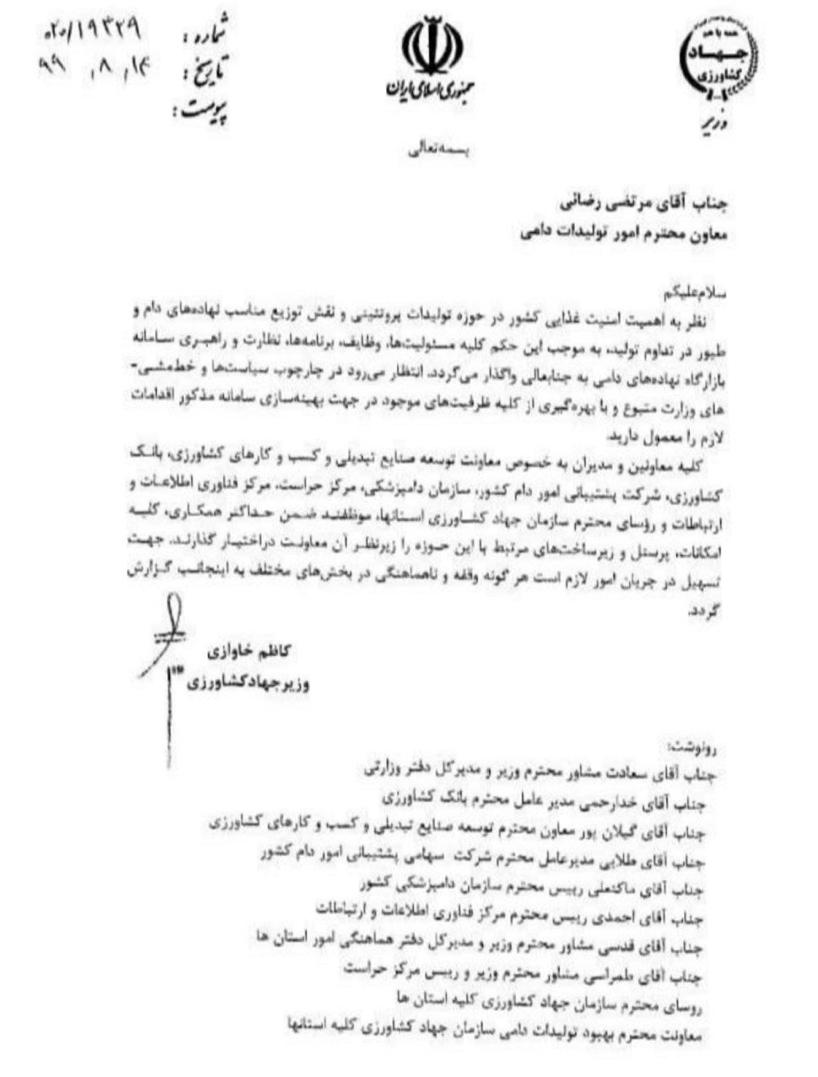 همه با هم
جهاد
کشاورزی
وزیر
جمهوری اسلامی ایران
شماره: ۰۲۰/۱۹۳۲۹
تاریخ: ۹۹/۸/۱۴
پیوست:
بسمه‌تعالی
جناب آقای مرتضی رضائی
معاون محترم امور تولیدات دامی
سلام‌علیکم
نظر به اهمیت امنیت غذایی کشور در حوزه تولیدات پروتئینی و نقش توزیع مناسب نهاده‌های دام و
طیور در تداوم تولید، به موجب این حکم کلیه مسئولیت‌ها، وظایف، برنامه‌ها، نظارت و راهبری سامانه
بازارگاه نهاده‌های دامی به جنابعالی واگذار می‌گردد. انتظار می‌رود در چارچوب سیاست‌ها و خط‌مشی-
های وزارت متبوع و با بهره‌گیری از کلیه ظرفیت‌های موجود در جهت بهینه‌سازی سامانه مذکور اقدامات
لازم را معمول دارید.
کلیه معاونین و مدیران به خصوص معاونت توسعه صنایع تبدیلی و کسب و کارهای کشاورزی، بانک
کشاورزی، شرکت پشتیبانی امور دام کشور، سازمان دامپزشکی، مرکز حراست، مرکز فناوری اطلاعات و
ارتباطات و رؤسای محترم سازمان جهاد کشاورزی استانها، موظفند ضمن حداکثر همکاری، کلیه
امکانات، پرسنل و زیرساخت‌های مرتبط با این حوزه را زیرنظر آن معاونت دراختیار گذارند. جهت
تسهیل در جریان امور لازم است هر گونه وقفه و ناهماهنگی در بخش‌های مختلف به اینجانب گزارش
گردد.
کاظم خاوازی
وزیرجهادکشاورزی
رونوشت:
جناب آقای سعادت مشاور محترم وزیر و مدیرکل دفتر وزارتی
جناب آقای خدارحمی مدیر عامل محترم بانک کشاورزی
جناب آقای گیلان پور معاون محترم توسعه صنایع تبدیلی و کسب و کارهای کشاورزی
جناب آقای طلایی مدیرعامل محترم شرکت سهامی پشتیبانی امور دام کشور
جناب آقای ماکنعلی رییس محترم سازمان دامپزشکی کشور
جناب آقای احمدی رییس محترم مرکز فناوری اطلاعات و ارتباطات
جناب آقای قدسی مشاور محترم وزیر و مدیرکل دفتر هماهنگی امور استان ها
جناب آقای طمراسی مشاور محترم وزیر و رییس مرکز حراست
روسای محترم سازمان جهاد کشاورزی کلیه استان ها
معاونت محترم بهبود تولیدات دامی سازمان جهاد کشاورزی کلیه استانها